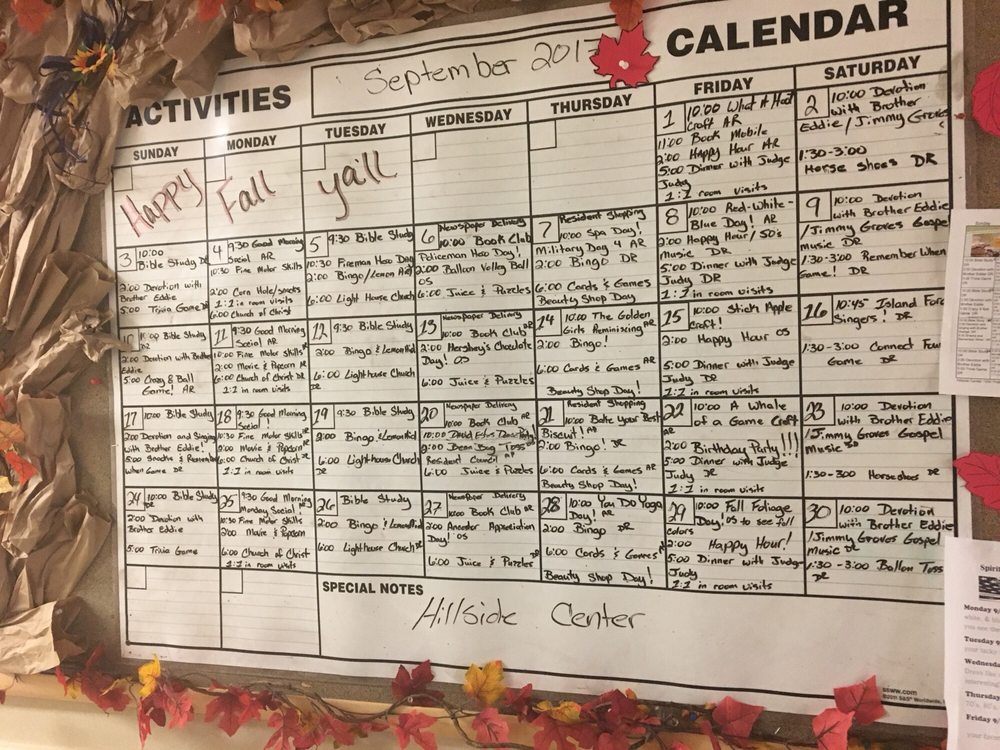 ACTIVITIES
September 2017
CALENDAR
SUNDAY
MONDAY
TUESDAY
WEDNESDAY
THURSDAY
FRIDAY
SATURDAY
Happy
Fall
ya'll
1
10:00 What A Hoot
Craft AR
11:00 Book Mobile
2:00 Happy Hour AR
5:00 Dinner with Judge
Judy
1:1 in room visits
2
10:00 Devotion
With Brother
Eddie/Jimmy Groves
1:30-3:00
Horse shoes DR
3
10:00
Bible Study DR
2:00 Devotion with
Brother Eddie
5:00 Trivia Game DR
4
9:30 Good Morning
Social AR
10:30 Fine Motor Skills
2:00 Corn Hole/
1:1 in room visits
6:00 Church of Christ
5
9:30 Bible Study
10:30 Fireman Hoop Day
2:00 Bingo/Lemon Aid
6:00 Light House Church
6
Newspaper Delivery
10:00 Book Club
Policeman Hoop Day!
2:00 Balloon Volley Ball
OS
6:00 Juice & Puzzles
7
Resident Shopping
10:00 Spa Day!
Military Day 4 AR
2:00 Bingo DR
6:00 Cards & Games
Beauty Shop Day
8
10:00 Red-White-
Blue Day! AR
2:00 Happy Hour/50's
Music DR
5:00 Dinner with Judge
Judy DR
1:1 in room visits
9
10:00 Devotion
with Brother Eddie
/Jimmy Groves Gospel
music DR
1:30-3:00 Remember When
Game! DR
10
10:00 Bible Study
DR
2:00 Devotion with Brother
Eddie
5:00 Crazy 8 Ball
Game! AR
11
9:30 Good Morning
Social AR
10:00 Fine Motor Skills
2:00 Movie & Popcorn DR
6:00 Church of Christ DR
1:1 in room visits
12
9:30 Bible Study
2:00 Bingo & LemonAid
6:00 Lighthouse Church
DR
13
Newspaper Delivery
10:00 Book Club AR
2:00 Hershey's Chocolate
Day! OS
6:00 Juice & Puzzles
14
10:00 The Golden
Girls Reminiscing AR
2:00 Bingo!
6:00 Cards & Games AR
Beauty Shop Day!
15
10:00 Stick Apple
Craft!
2:00 Happy Hour OS
5:00 Dinner with Judge
Judy DR
1:1 in room visits
16
10:45 Island Ford
Singers! DR
1:30-3:00 Connect Four
Game DR
17
10:00 Bible Study
2:00 Devotion and Singing
with Brother Eddie!
5:00 Snacks & Remember
When Game DR
18
9:30 Good Morning
Social!
10:30 Fine Motor Skills
2:00 Movie & Popcorn
6:00 Church of Christ DR
1:1 in room visits
19
9:30 Bible Study
2:00 Bingo & LemonAid
6:00 Lighthouse Church
DR
20
Newspaper Delivery
10:00 Book Club AR
10:00 David
2:00 Bean Bag Toss
Resident Council AR
6:00 Juice & Puzzles
21
Resident Shopping
10:00 Bake your Best
Biscuit! AR
2:00 Bingo! DR
6:00 Cards & Games AR
Beauty Shop Day!
22
10:00 A Whale
of a Game Craft
AR
2:00 Birthday Party!!!
5:00 Dinner with Judge
Judy DR
1:1 in room visits
23
10:00 Devotion
with Brother Eddie
/Jimmy Groves Gospel
Music
1:30-3:00 Horseshoes DR
24
10:00 Bible Study
DR
2:00 Devotion with
Brother Eddie
5:00 Trivia Game
25
9:30 Good Morning
Monday Social
10:30 Fine Motor Skills
2:00 Movie & Popcorn
6:00 Church of Christ
1:1 in room visits
26
Bible Study
2:00 Bingo & LemonAid
6:00 Lighthouse Church DR
27
Newspaper Delivery
10:00 Book Club AR
2:00 Ancestor Appreciation
Day! OS
6:00 Juice & Puzzles
28
10:00 You Do Yoga
Day! AR
2:00 Bingo DR
6:00 Cards & Games
Beauty Shop Day!
29
10:00 Fall Foliage
Day! OS to see fall
colors
2:00 Happy Hour!
5:00 Dinner with Judge
Judy
1:1 in room visits
30
10:00 Devotion
with Brother Eddie
/Jimmy Groves Gospel
Music DR
1:30-3:00 Ballon Toss
DR
SPECIAL NOTES
Hillside Center
ssww.com
Spirit
Monday 9/
Tuesday 9
Wednesda
Thursday
Friday 9/